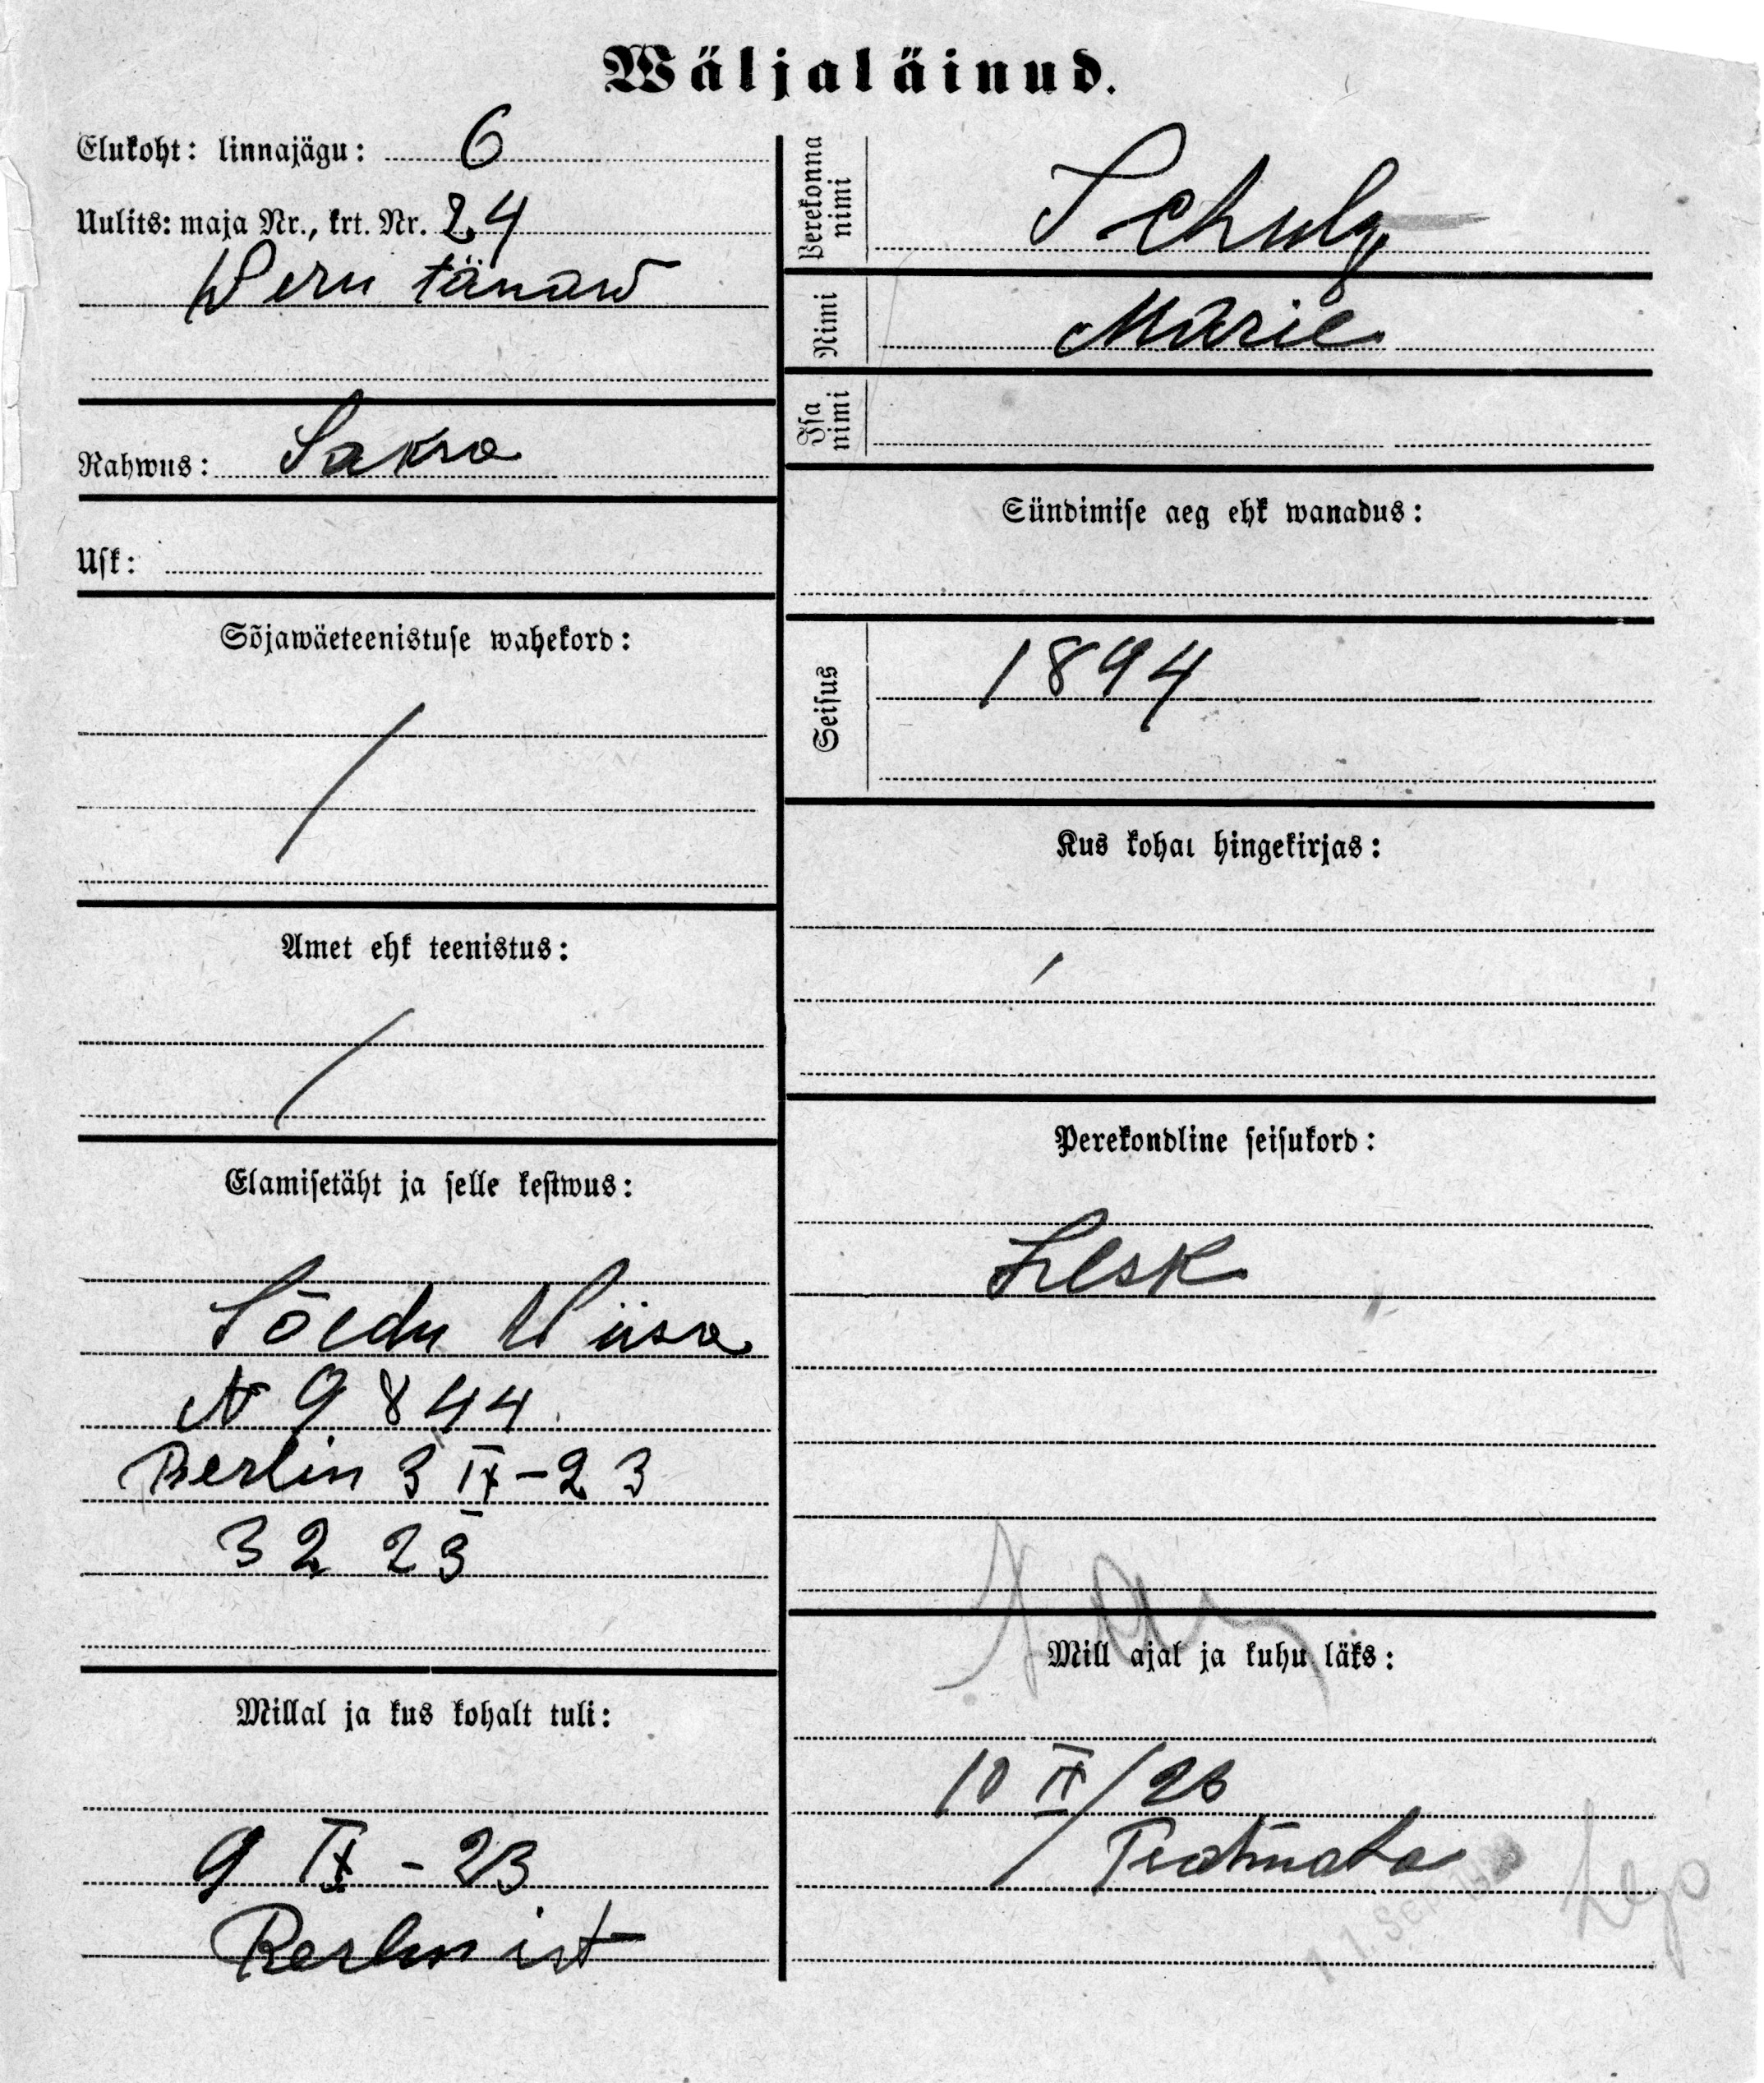 Wäljaläinud.
Elukoht: linnajägu: 6
Uulits: maja Nr., krt. Nr. 24
Weru tänaw
Rahwus: Saksa
Usk:
Sõjawäeteenistuse wahekord:
/
Amet ehk teenistus:
/
Elamisetäht ja selle kestwus:
Sõedu Wiisa
N 9844
Berlin 3 IX-23
32 23
Millal ja kus kohalt tuli:
9 IX - 23
Berlinist
Perekonna nimi
Schulz
Nimi
Marie
Isa nimi
Sündimise aeg ehk wanadus:
Seisus
1894
Kus kohal hingekirjas:
Perekondline seisukord:
Lesk
Mill ajal ja kuhu läks:
10 IX/23
Teatmata
11. Sep. 192